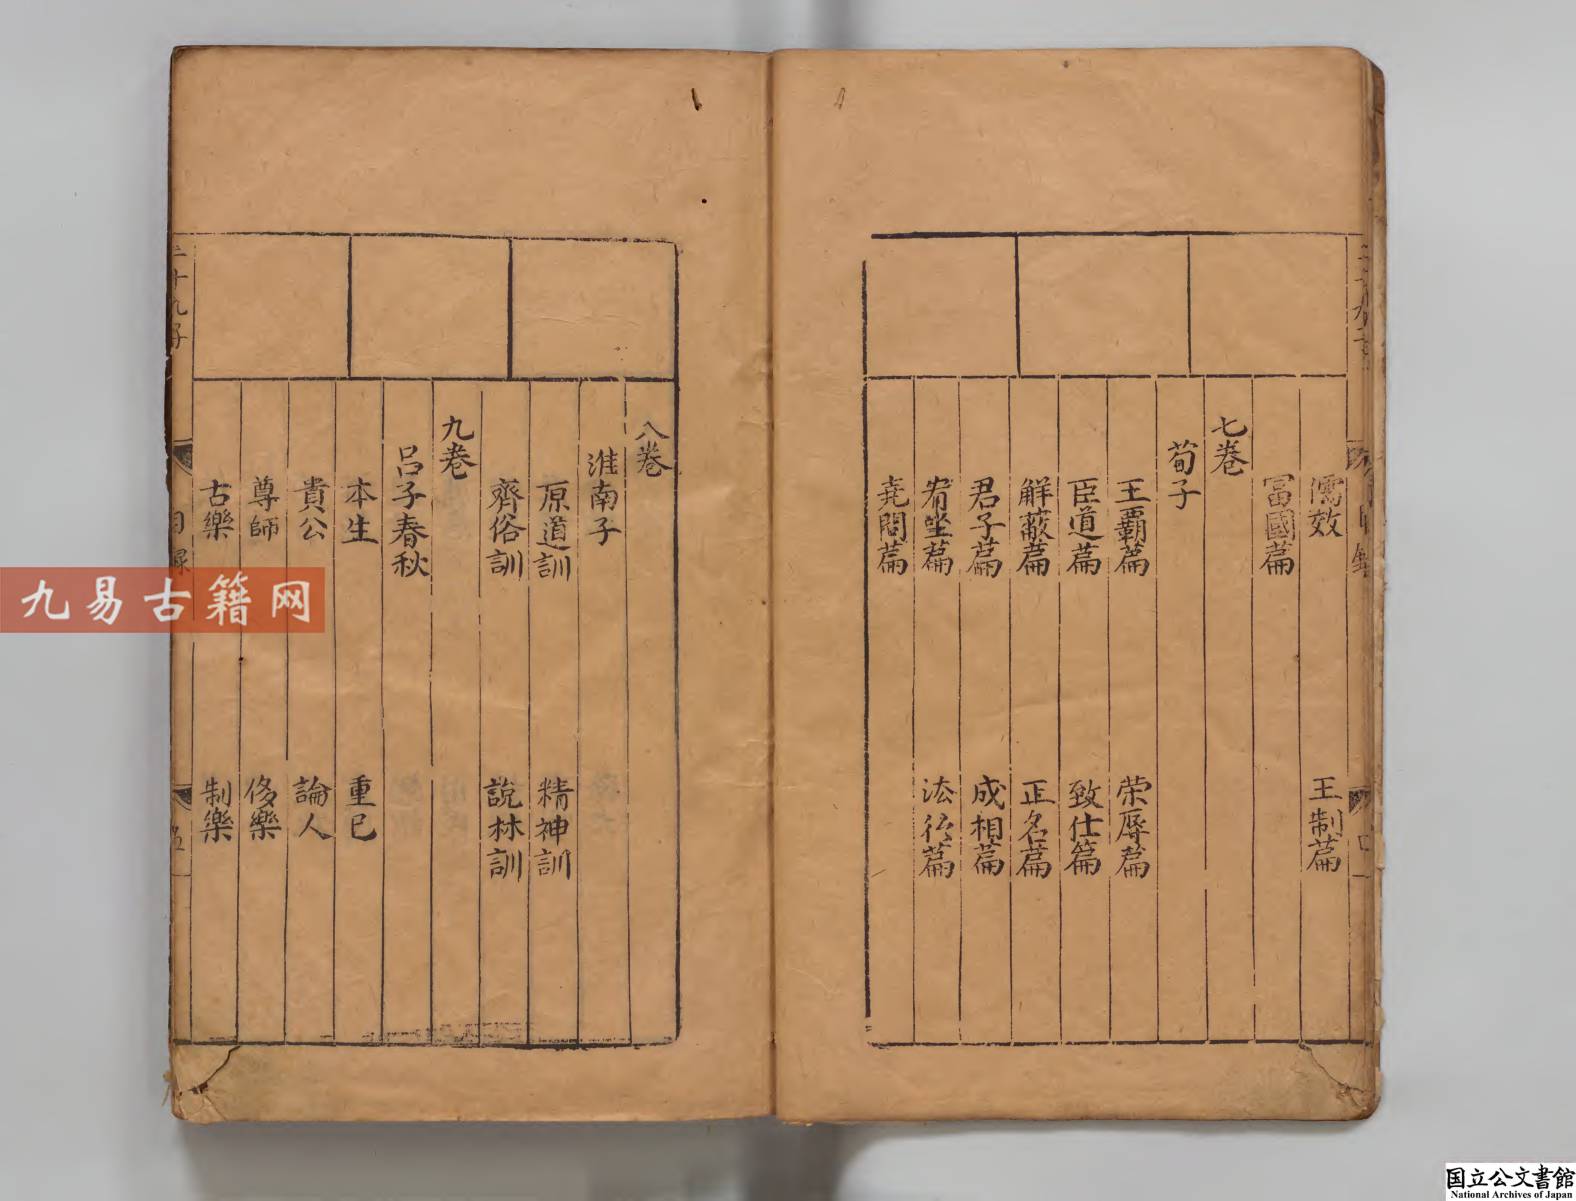 儒效　王制篇
富國篇
七卷
荀子
王霸篇　荣辱篇
臣道篇　致仕篇
解蔽篇　正名篇
君子篇　成相篇
宥坐篇　法行篇
堯問篇
八卷
淮南子
原道訓　精神訓
齊俗訓　說林訓
九卷
吕子春秋
本生　重已
貴公　論人
尊師　侈樂
古樂　制樂
二十九子　目録　五
九易古籍网
国立公文書館
National Archives of Japan